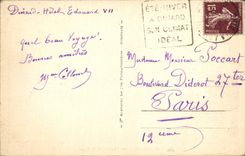 Dinard - Hôtel Edouard VII
Quel beau voyage!
Bonnes amitiés
ÉTÉ-HIVER
A DINARD
SUR CLIMAT
IDÉAL
Madame Monsieur Soccart
Boulevard Diderot 27 ter
Paris
12 ème